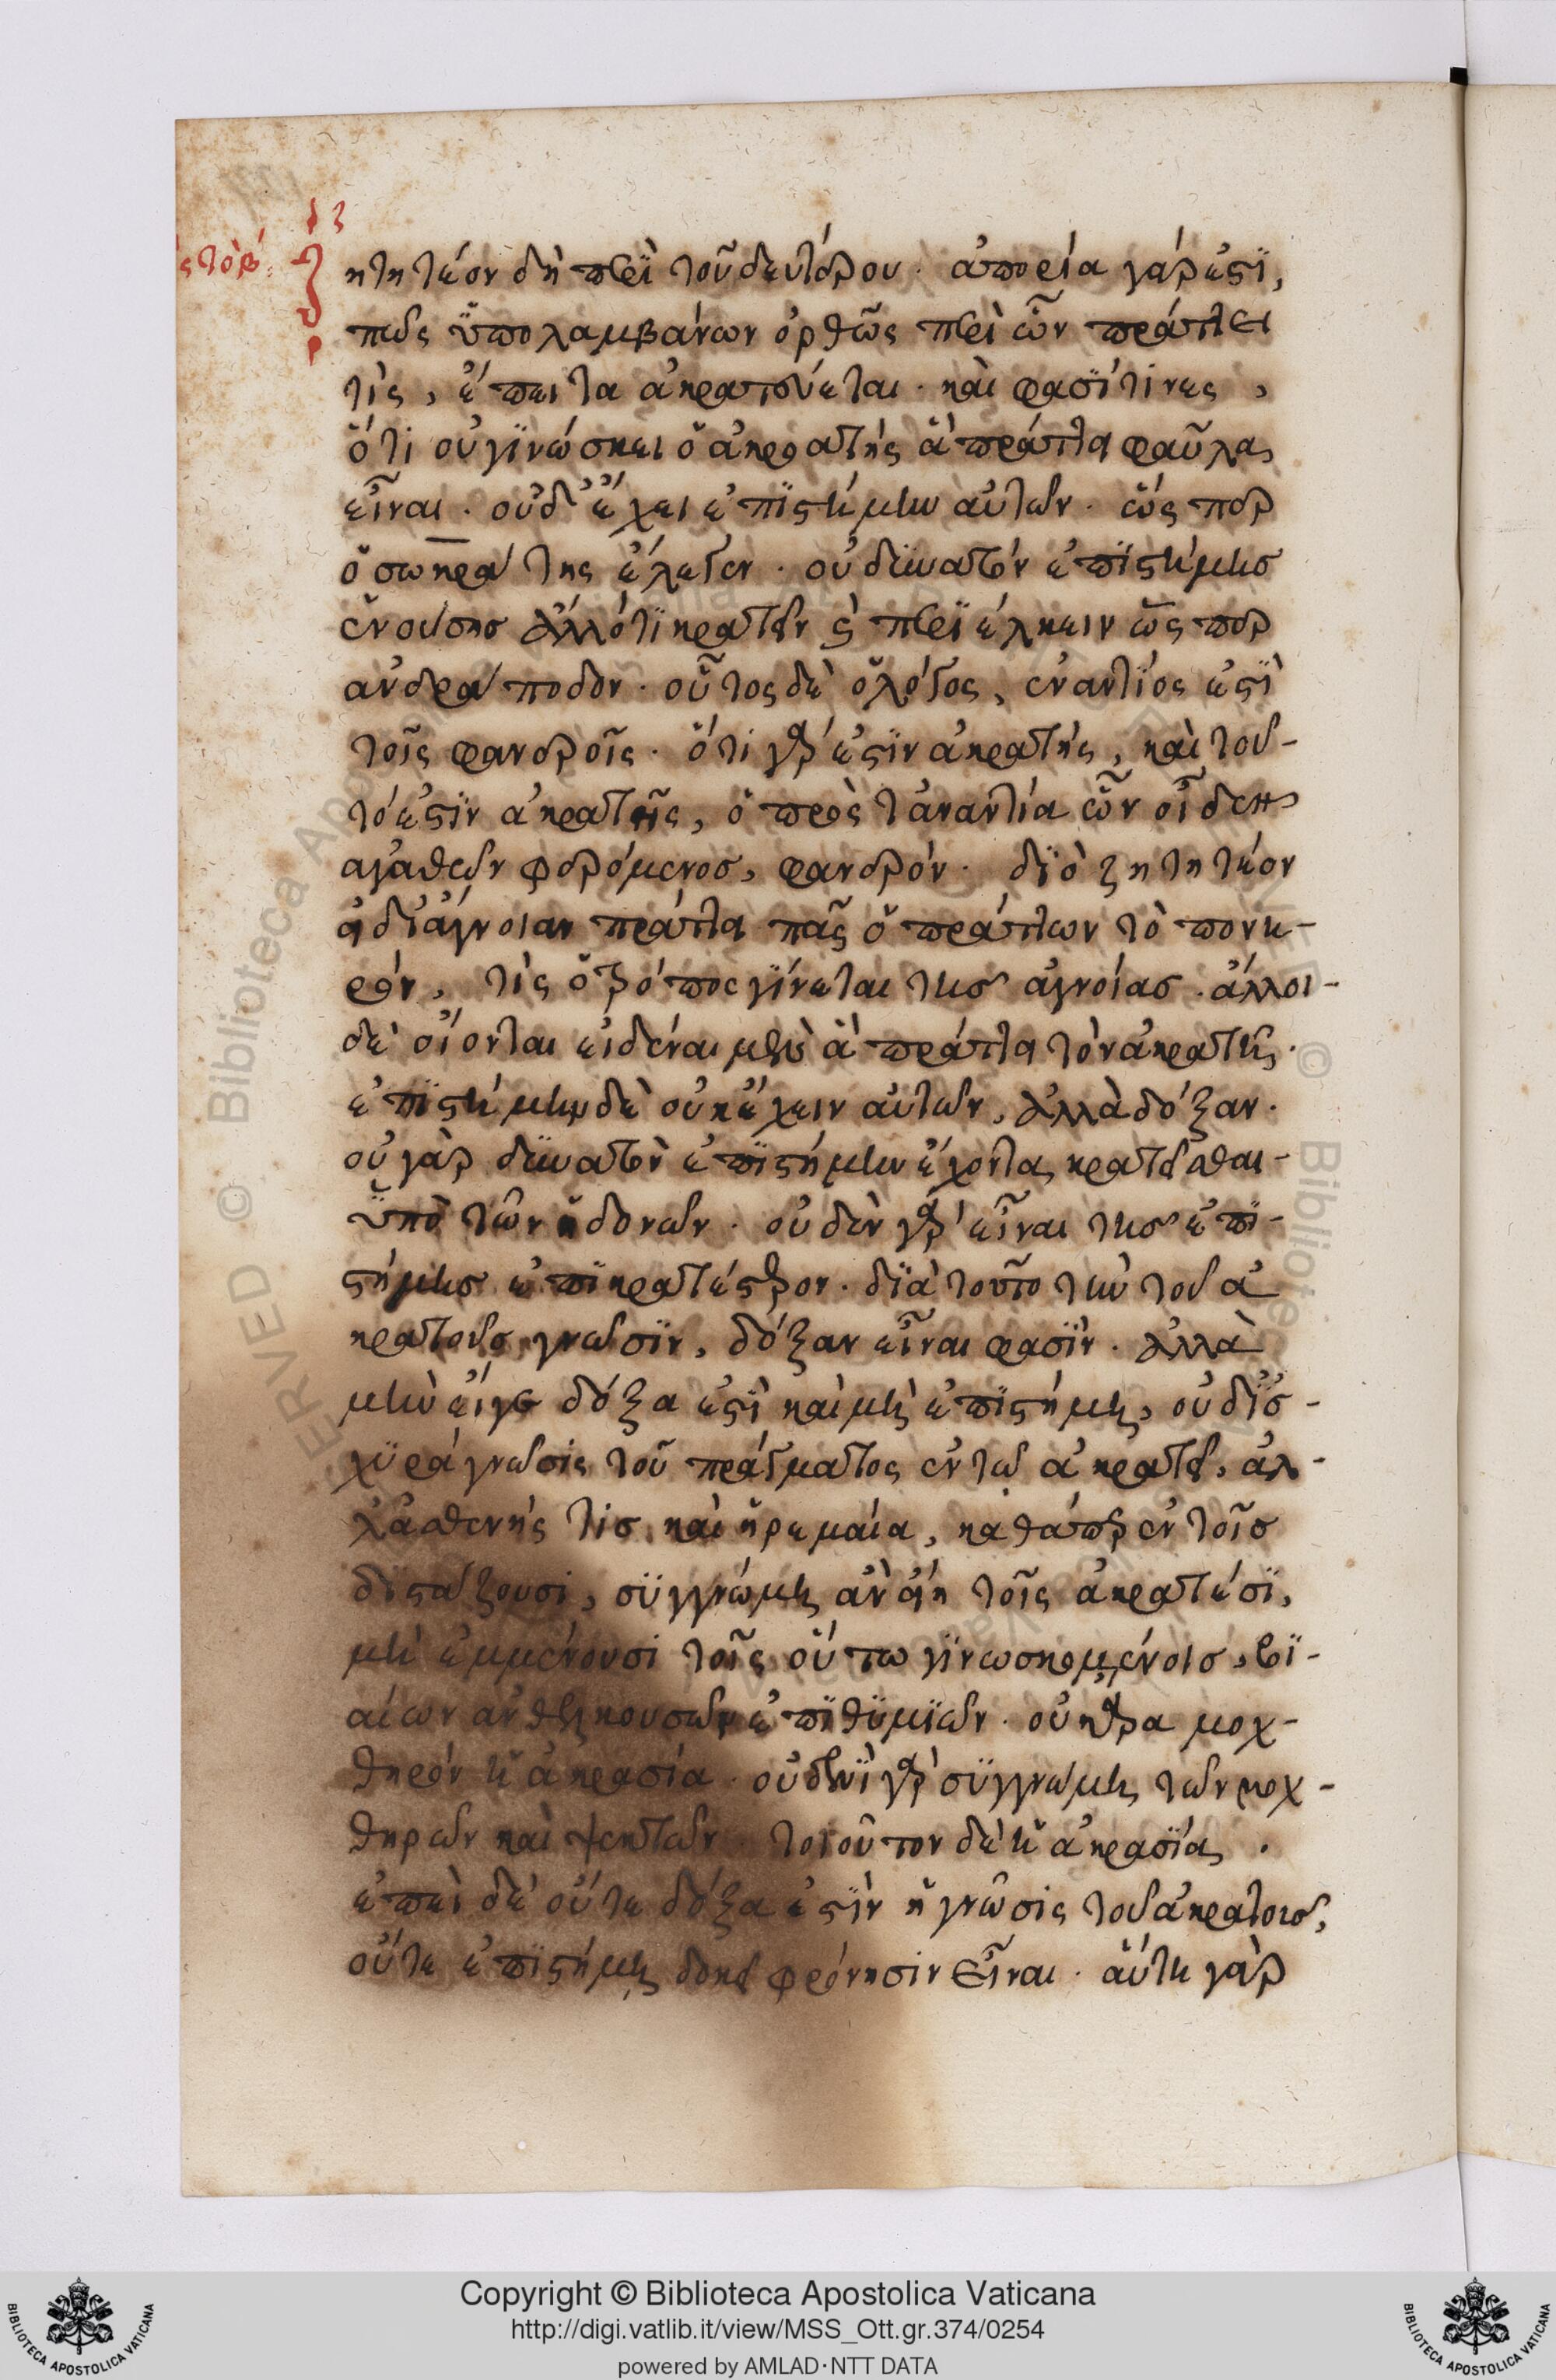 ς τὸ β´
ζητητέον δὴ περὶ τοῦ δευτέρου. ἀπορία γάρ ἐστι,
πῶς ὑπολαμβάνων ὀρθῶς περὶ ὧν πράττει
τὶς, ἔπειτα ἀκρατεύεται. καὶ φασί τινες,
ὅτι οὐ γινώσκει ὁ ἀκρατὴς ἃ πράττει φαῦλα
εἶναι. οὐδ' ἔχει ἐπιστήμην αὐτῶν. ὥς περ
ὁ σωκράτης ἔλεγεν. οὐ δυνατὸν ἐπιστήμησ
ἐνούσησ ἄλλό τι κρατεῖν ϗ περιέλκειν ὥς περ
ἀνδράποδον. οὗτος δὲ ὁ λόγος, ἐναντίος ἐστὶ
τοῖς φανεροῖς. ὅτι γὰρ ἐστὶν ἀκρατής, καὶ τοῦ-
τό ἐστὶν ἀκρατῆς, ὁ πρὸς τἀναντία ὧν οἶδεν
ἀγαθῶν φερόμενοσ, φανερόν. διὸ ζητητέον
εἰ δι' ἄγνοιαν πράττει πᾶς ὁ πράττων τὸ πονη-
ρόν, τίς ὁ τρόπος γίνεται τῆσ ἀγνοίασ. ἄλλοι-
δὲ οἴονται εἰδέναι μὲν ἃ πράττει τὸν ἀκρατῆ.
ἐπιστήμην δὲ οὐκ ἔχειν αὐτῶν, ἀλλὰ δόξαν.
οὐ γὰρ δυνατὸν ἐπιστήμην ἔχοντα κρατεῖσθαι-
ὑπὸ τῶν ἡδονῶν. οὐδὲν γὰρ εἶναι τῆσ ἐπι-
στήμησ ἐπικρατέστερον. διὰ τοῦτο τὴν τοῦ ἀ
κρατοῦσ γνῶσιν, δόξαν εἶναι φασὶν. ἀλλὰ
μὴν εἴγε δόξα ἐστὶ καὶ μὴ ἐπιστήμη, οὐδ' ἰσ-
χυρά γνῶσις τοῦ πράγματος ἐν τῷ ἀκρατεῖ, ἀλ-
λ' ἀσθενής τισ καὶ ἠρεμαία, καθάπερ ἐν τοῖσ
διστάζουσι, συγγνώμη ἂν εἴη τοῖς ἀκρατέσι,
μὴ ἐμμένουσι τοῖς οὕτω γινωσκομένοισ, βι-
αίων ἀνθελκουσῶν ἐπιθυμιῶν. οὐκ ἄρα μοχ-
θηρόν ἡ ἀκρασία. οὐδενὶ γὰρ συγγνώμη τῶν μοχ-
θηρῶν καὶ ψεκτῶν. τοιοῦτον δὲ ἡ ἀκρασία.
ἐπεὶ δὲ οὔτε δόξα ἐστὶν ἡ γνῶσις τοῦ ἀκρατοῦσ,
οὔτε ἐπιστήμη δοκεῖ φρόνησιν εἶναι. αὕτη γὰρ
Copyright © Biblioteca Apostolica Vaticana
http://digi.vatlib.it/view/MSS_Ott.gr.374/0254
powered by AMLAD·NTT DATA